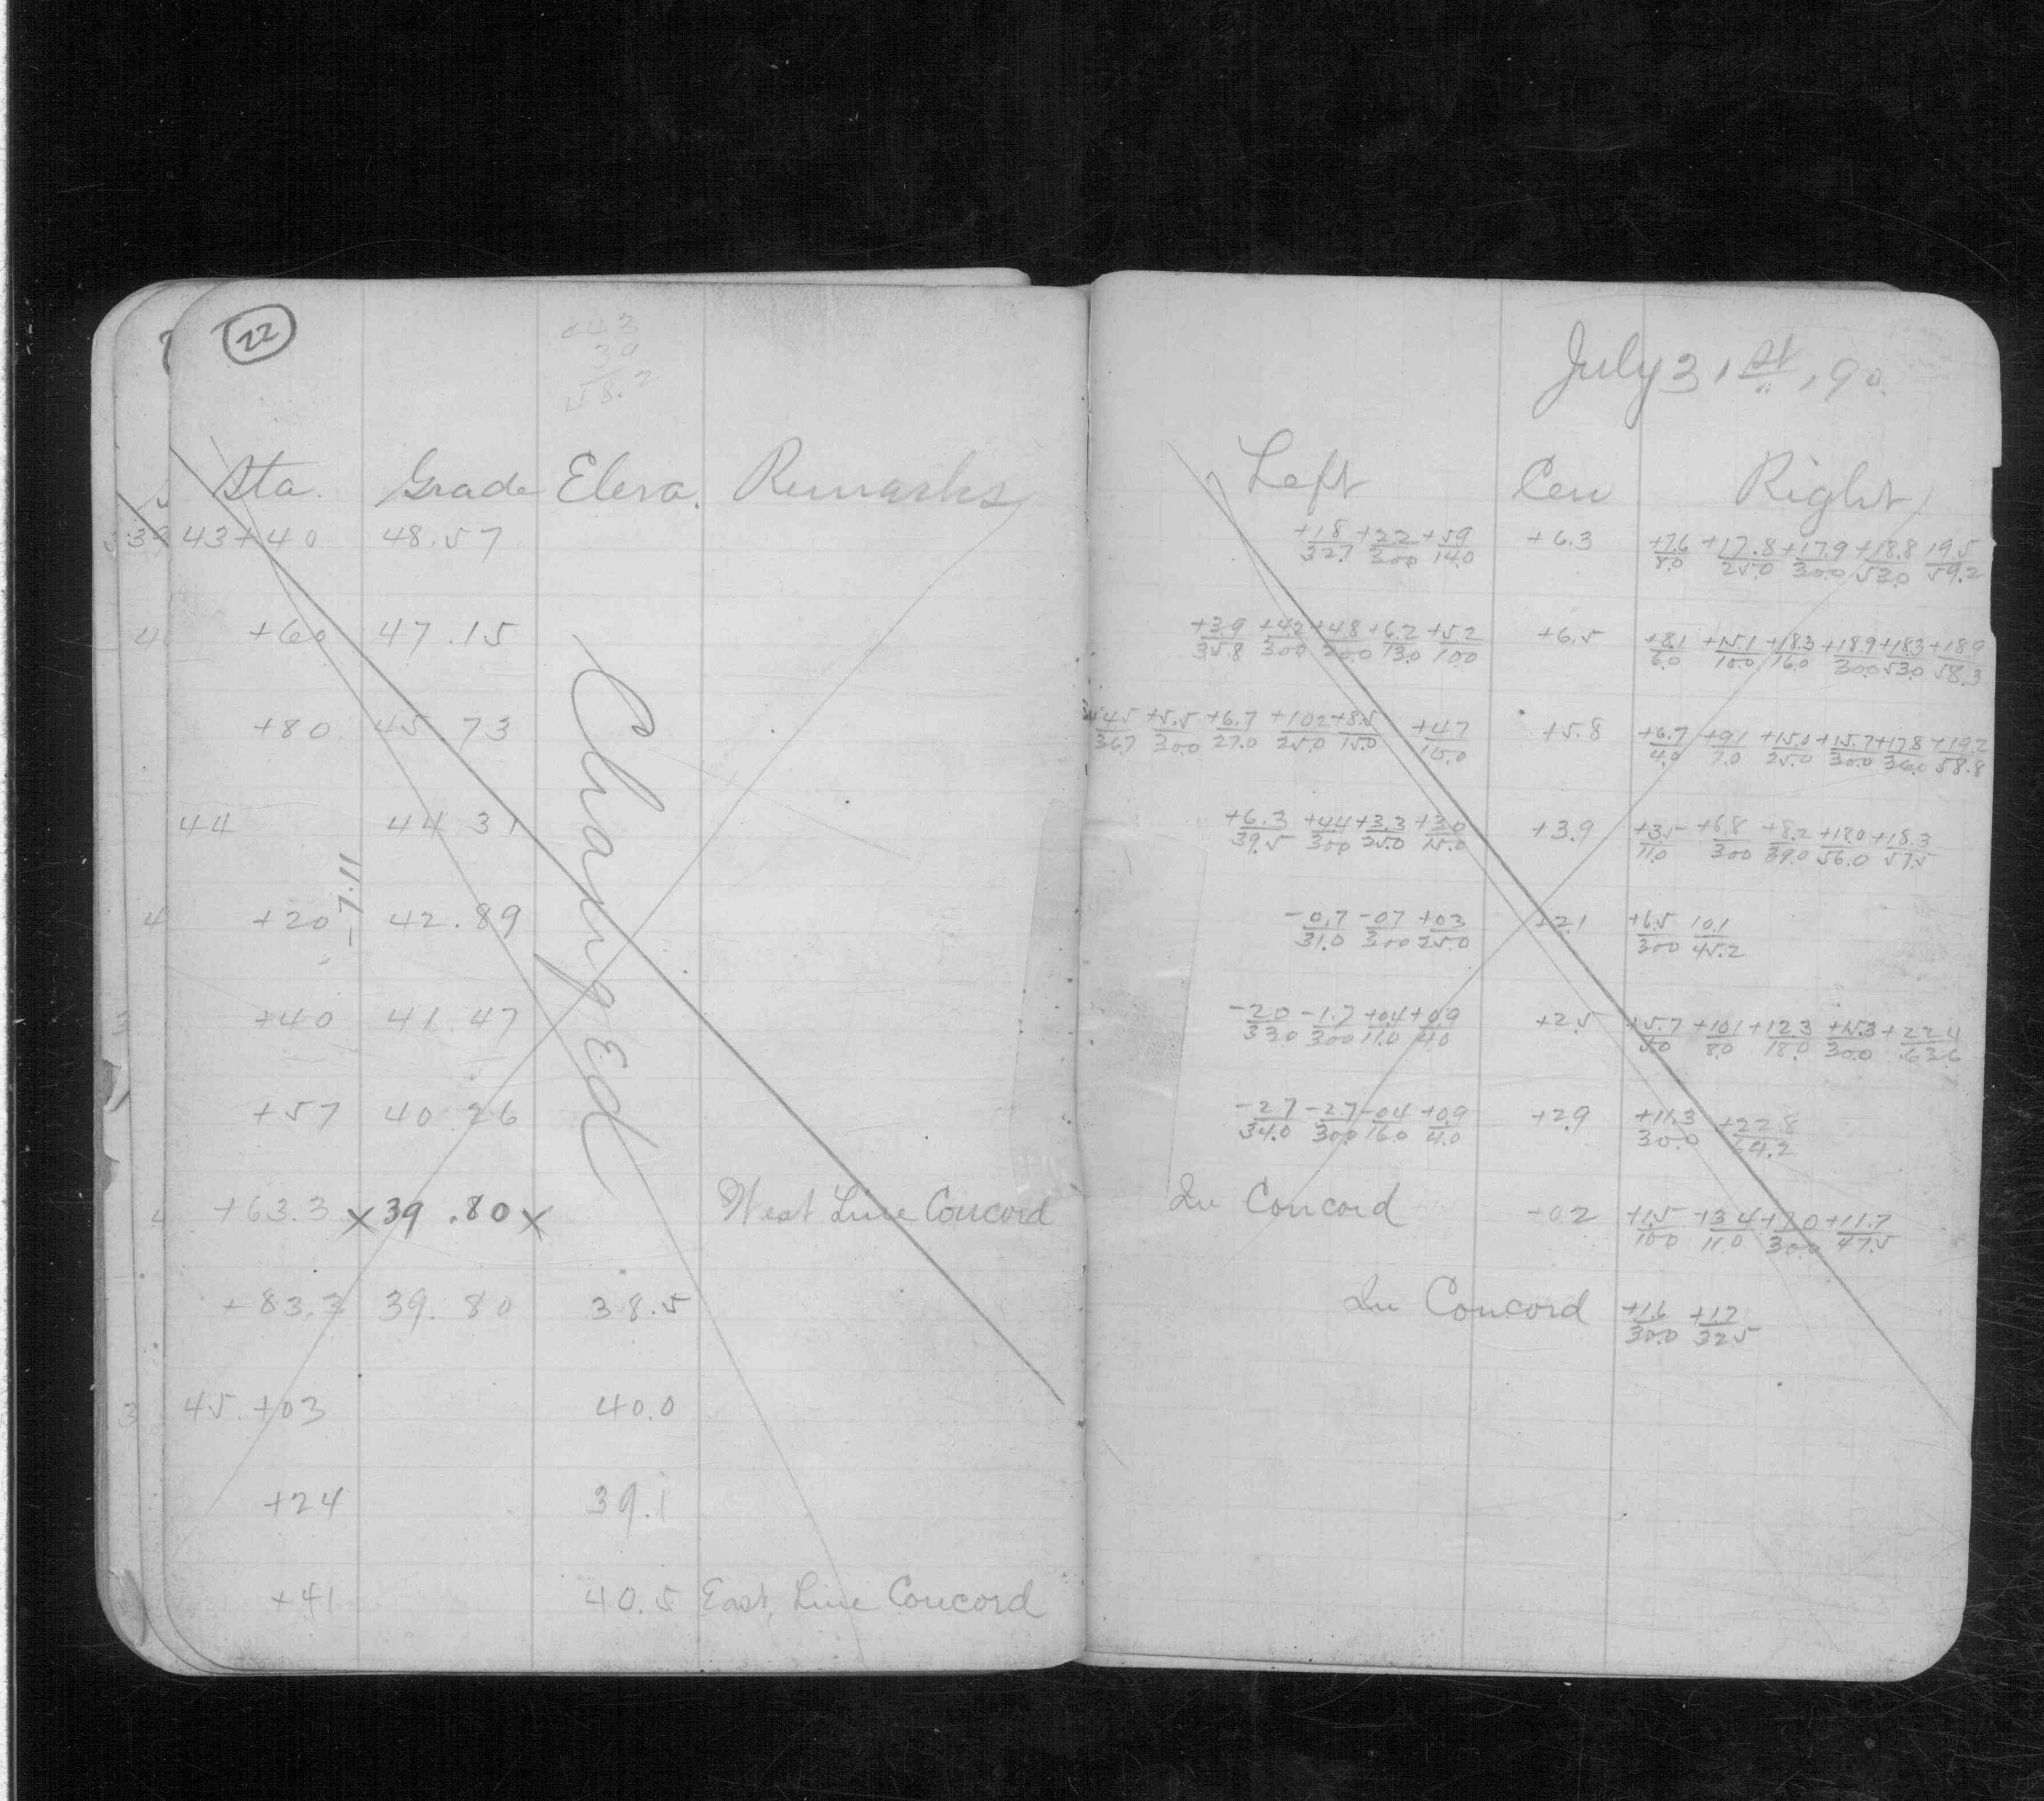 22
July 31st, 90.
Sta. Grade Eleva. Remarks Left Cen Right
43+40 48.57 +1.8/32.7 +2.2/30.0 +5.9/14.0 +6.3 +7.6/8.0 +17.8/25.0 +17.9/30.0 +18.8/53.0 19.5/59.2
+60 47.15 +3.9/35.8 +4.2/30.0 +4.8/20.0 +6.2/13.0 +5.2/10.0 +6.5 +8.1/6.0 +15.1/10.0 +18.3/16.0 +18.9/30.0 +18.3/53.0 +18.9/58.3
+80 45.73 +4.5/36.7 +5.5/30.0 +6.7/27.0 +10.2/25.0 +8.5/15.0 +4.7/10.0 +5.8 +6.7/4.0 +9.1/7.0 +15.0/25.0 +15.7/30.0 +17.8/36.0 +19.2/58.8
44 44.31 +6.3/39.5 +4.4/30.0 +3.3/25.0 +3.0/15.0 +3.9 +3.5/11.0 +6.8/30.0 +8.2/39.0 +18.0/56.0 +18.3/57.5
-7.11
+20 42.89 -0.7/31.0 -0.7/30.0 +0.3/25.0 +2.1 +6.5/30.0 10.1/45.2
+40 41.47 -2.0/33.0 -1.7/30.0 +0.4/11.0 +0.9/4.0 +2.5 +5.7/5.0 +10.1/8.0 +12.3/18.0 +15.3/30.0 +22.4/63.6
+57 40.26 -2.7/34.0 -2.7/30.0 -0.4/16.0 +0.9/4.0 +2.9 +11.3/30.0 +22.8/64.2
+63.3 x 39.80 x West Line Concord In Concord -0.2 +1.5/10.0 +3.4/11.0 +7.0/30.0 +11.7/47.5
+83.3 39.80 38.5 In Concord +1.6/30.0 +1.7/32.5
45.+03 40.0
+24 39.1
+41 40.5 East Line Concord
Changed